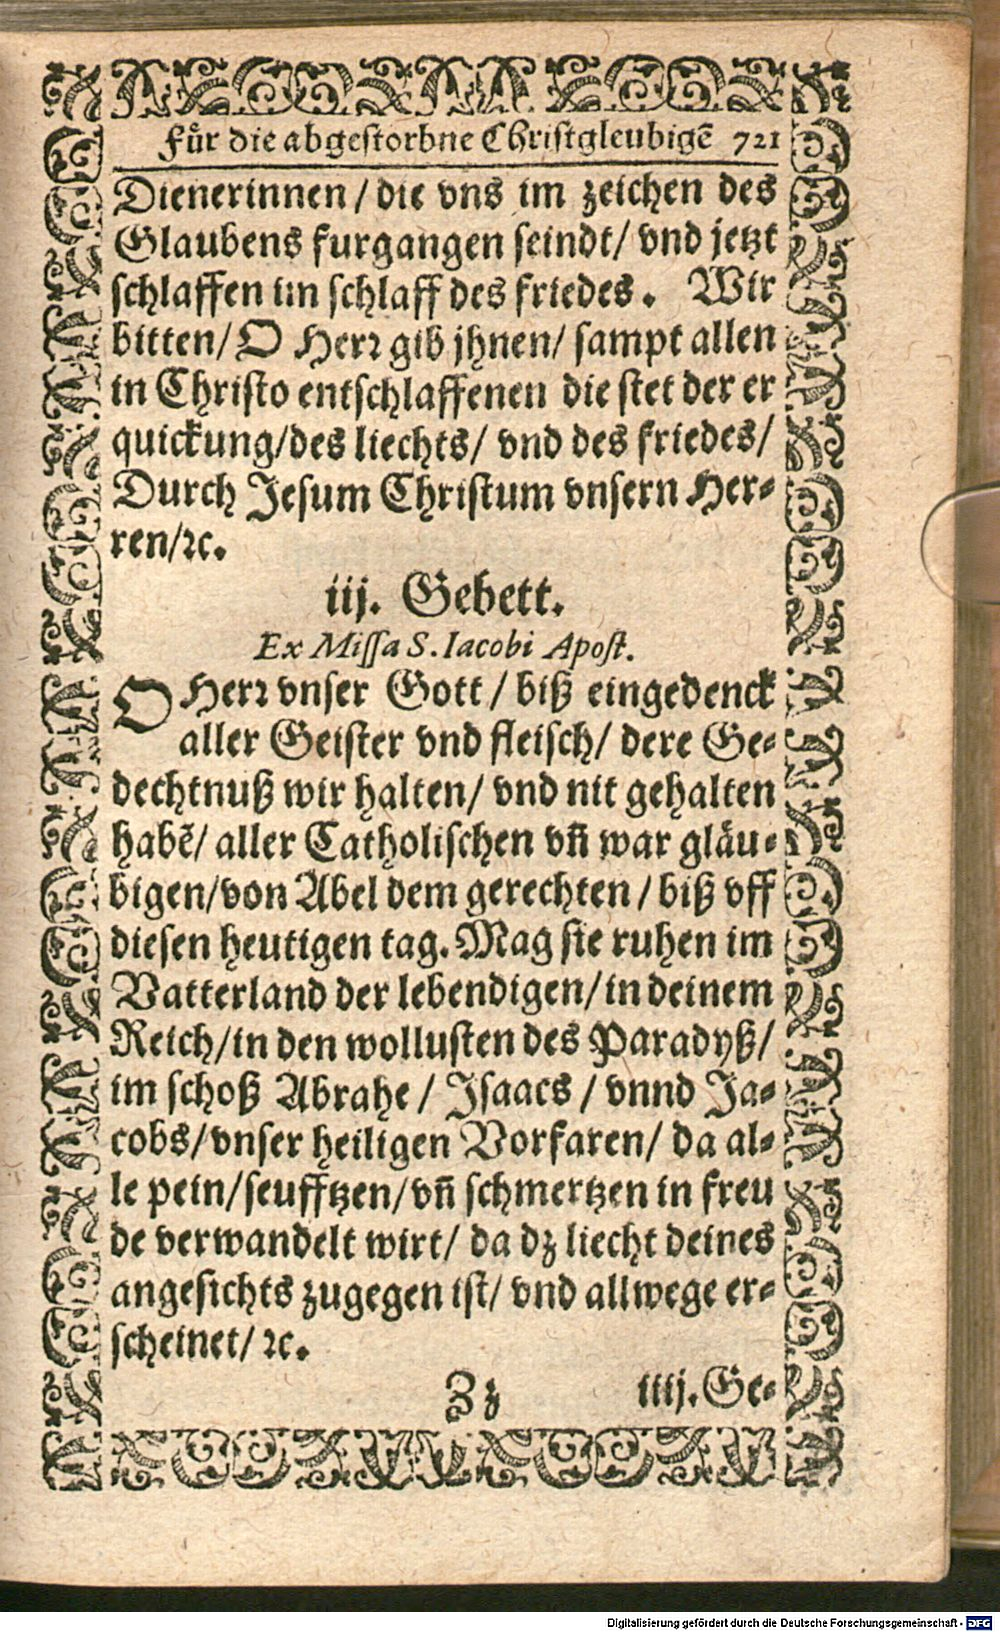 Fuͤr die abgestorbne Christgleubigẽ 721
Dienerinnen / die vns im zeichen des
Glaubens furgangen seindt / vnd jetzt
schlaffen im schlaff des friedes. Wir
bitten / O Herr gib jhnen / sampt allen
in Christo entschlaffenen die stet der er
quickung / des liechts / vnd des friedes /
Durch Jesum Christum vnsern Her-
ren / ꝛc.
iij. Gebett.
Ex Missa S. Iacobi Apost.
O Herr vnser Gott / biß eingedenck
aller Geister vnd fleisch / dere Ge-
dechtnuß wir halten / vnd nit gehalten
habẽ / aller Catholischen vñ war gläu-
bigen / von Abel dem gerechten / biß vff
diesen heutigen tag. Mag sie ruhen im
Vatterland der lebendigen / in deinem
Reich / in den wollusten des Paradyß /
im schoß Abrahe / Isaacs / vnnd Ja-
cobs / vnser heiligen Vorfaren / da al-
le pein / seufftzen / vñ schmertzen in freu
de verwandelt wirt / da dz liecht deines
angesichts zugegen ist / vnd allwege er-
scheinet / ꝛc.
Zz iiij. Ge-
Digitalisierung gefördert durch die Deutsche Forschungsgemeinschaft - DFG